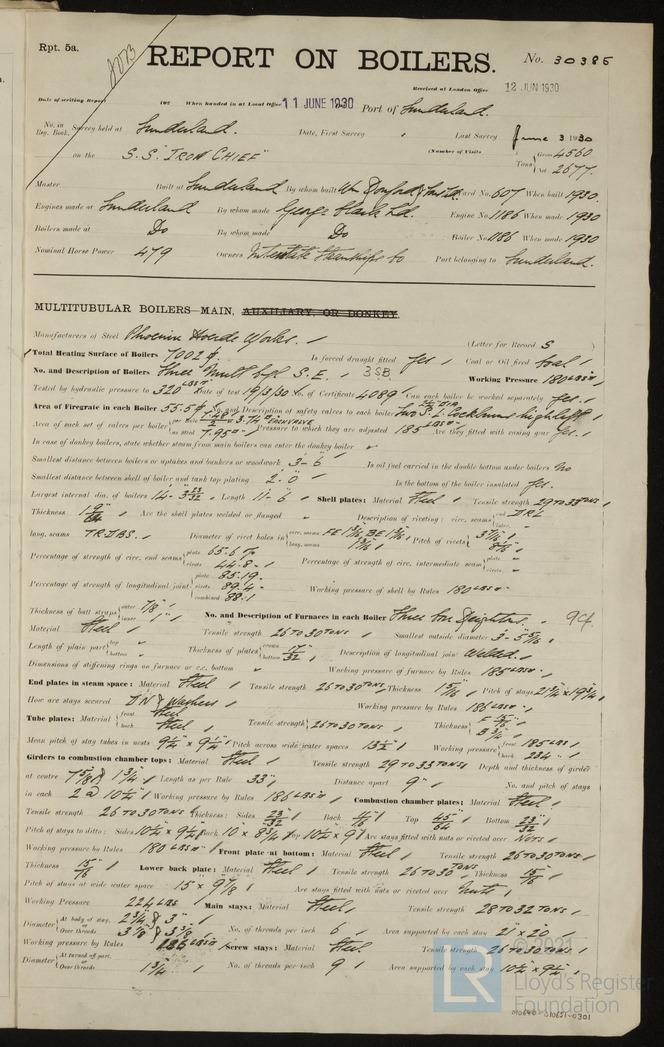 Rpt. 5a.
REPORT ON BOILERS.
No. 30385
Received at London Office 12 JUN 1930
Date of writing Report 192 When handed in at Local Office 11 JUNE 1930 Port of Sunderland.
No. in Reg. Book. Survey held at Sunderland. Date, First Survey Last Survey June 3 1930
on the S.S. "IRON CHIEF" (Number of Visits Tons Gross 4560 Net 2677.
Master Built at Sunderland By whom built Wm Doxford & Sons Ld. Yard No. 607 When built 1930.
Engines made at Sunderland By whom made George Clark Ld. Engine No. 1186 When made 1930
Boilers made at Do By whom made Do Boiler No. 1186 When made 1930
Nominal Horse Power 479 Owners Interstate Steamships Co Port belonging to Sunderland.
MULTITUBULAR BOILERS MAIN, AUXILIARY, OR DONKEY.
Manufacturers of Steel Phoenix Hoerde Works. (Letter for Record S)
Total Heating Surface of Boilers 7002 Is forced draught fitted Yes Coal or Oil fired Coal
No. and Description of Boilers Three Mult S.E. 3SB Working Pressure 180 LBS
Tested by hydraulic pressure to 320 LBS Date of test 19/3/30 No. of Certificate 4089 Can each boiler be worked separately Yes.
Area of Firegrate in each Boiler 55.5 No. and Description of safety valves to each boiler Two S.L. Cockburns high lift
Area of each set of valves per boiler per Rule 7.48 as fitted 7.95 Pressure to which they are adjusted 185 LBS Are they fitted with easing gear Yes.
In case of donkey boilers, state whether steam from main boilers can enter the donkey boiler
Smallest distance between boilers or uptakes and bunkers or woodwork 3-6 Is oil fuel carried in the double bottom under boilers No
Smallest distance between shell of boiler and tank top plating 2'.0" Is the bottom of the boiler insulated Yes.
Largest internal dia. of boilers 14-3 23/32 Length 11-6 Shell plates: Material Steel Tensile strength 29 TO 33 TONS
Thickness Are the shell plates welded or flanged Description of riveting: circ. seams end D.R.L inter.
long. seams T.R.D.B.S. Diameter of rivet holes in circ. seams long. seams Pitch of rivets
Percentage of strength of circ. end seams plate 65.6 rivets 44.8 Percentage of strength of circ. intermediate seam plate rivets
Percentage of strength of longitudinal joint plate 85.19 rivets 89.4 combined 88.1 Working pressure of shell by Rules 180 LBS
Thickness of butt straps outer 7/8 inner 1" No. and Description of Furnaces in each Boiler Three Deightons. 94
Material Steel Tensile strength 26 TO 30 TONS Smallest outside diameter 3-5 5/16
Length of plain part top bottom Thickness of plates crown bottom 17/32 Description of longitudinal joint Welded.
Dimensions of stiffening rings on furnace or c.c. bottom Working pressure of furnace by Rules 185 LBS
End plates in steam space: Material Steel Tensile strength 26 TO 30 TONS Thickness 1 5/16 Pitch of stays 21 1/4 x 19 3/4
How are stays secured D.N & Washers Working pressure by Rules 186 LBS
Tube plates: Material front Steel back Steel Tensile strength 26 TO 30 TONS Thickness
Mean pitch of stay tubes in nests 9 1/4 x 9 1/4 Pitch across wide water spaces 13 1/2 Working pressure front 185 LBS back 234
Girders to combustion chamber tops: Material Steel Tensile strength 29 TO 33 TONS Depth and thickness of girder
at centre 7 5/8 @ 1 3/4 Length as per Rule 33" Distance apart 9" No. and pitch of stays
in each 2 @ 10 1/2 Working pressure by Rules 186 LBS Combustion chamber plates: Material Steel
Tensile strength 26 TO 30 TONS Thickness: Sides 23/32 Back Top 45/64 Bottom 23/32
Pitch of stays to ditto: Sides 10 1/2 x 9 1/4 Back 10 x 8 3/4 Top 10 1/2 x 9 Are stays fitted with nuts or riveted over NUTS
Working pressure by Rules 180 LBS Front plate at bottom: Material Steel Tensile strength 26 TO 30 TONS
Thickness 15/16 Lower back plate: Material Steel Tensile strength 26 TO 30 TONS Thickness 15/16
Pitch of stays at wide water space 15" x 9 7/8 Are stays fitted with nuts or riveted over Nuts
Working Pressure 224 LBS Main stays: Material Steel Tensile strength 28 TO 32 TONS
Diameter At body of stay, 2 3/4 & 3" Over threads 3 1/8 & 3 3/8 No. of threads per inch 6 Area supported by each stay 21 x 20
Working pressure by Rules Screw stays: Material Steel Tensile strength 26 TO 30 TONS
Diameter At turned off part, Over threads 1 3/4 No. of threads per inch 9 Area supported by each stay 10 1/2 x 9 1/4
© 2021
LR
Lloyd's Register
Foundation
010640-010651-0301